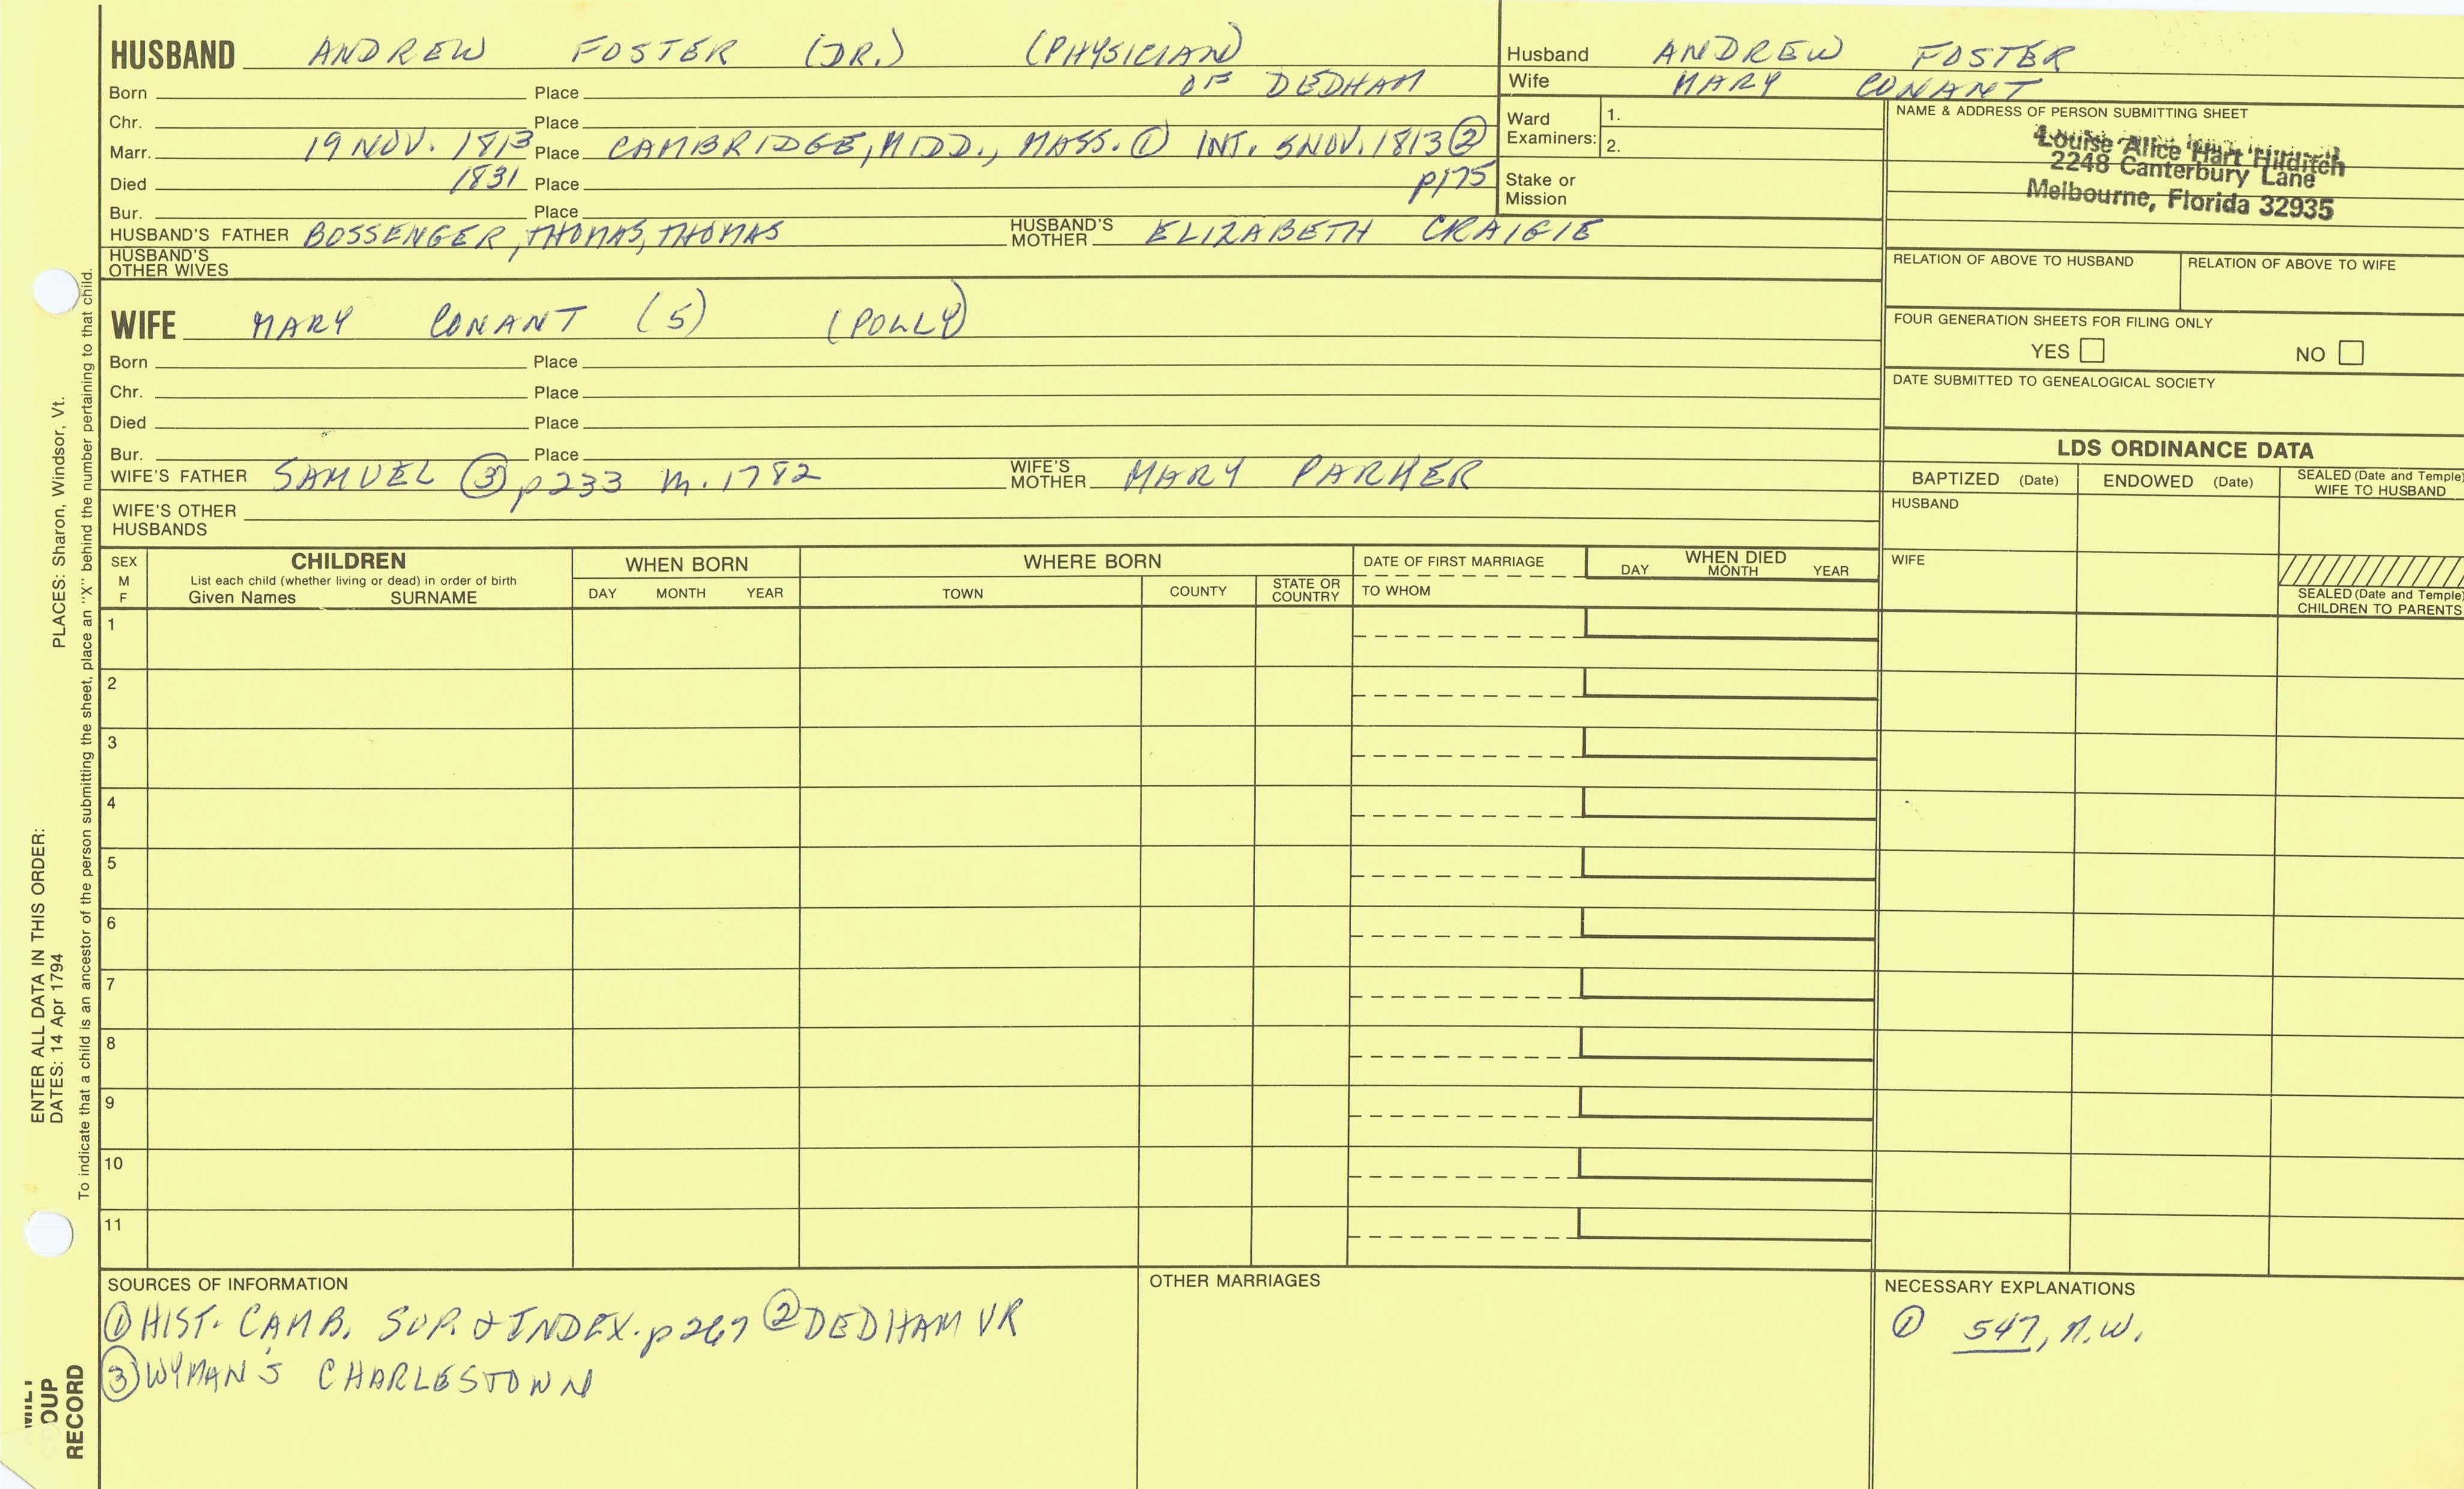 HUSBAND ANDREW FOSTER (DR.) (PHYSICIAN)
OF DEDHAM
Born Place
Chr. Place
Marr. 19 NOV. 1813 Place CAMBRIDGE, MIDD., MASS. ① INT. 5 NOV. 1813 ②
Died 1831 Place p175
Bur. Place
HUSBAND'S FATHER BOSSENGER, THOMAS, THOMAS HUSBAND'S MOTHER ELIZABETH CRAIGIE
HUSBAND'S OTHER WIVES
Husband ANDREW FOSTER
Wife MARY CONANT
Ward Examiners: 1.
2.
Stake or Mission
NAME & ADDRESS OF PERSON SUBMITTING SHEET
Louise Alice Hart Hilditch
2248 Canterbury Lane
Melbourne, Florida 32935
RELATION OF ABOVE TO HUSBAND RELATION OF ABOVE TO WIFE
FOUR GENERATION SHEETS FOR FILING ONLY
YES NO
DATE SUBMITTED TO GENEALOGICAL SOCIETY
WIFE MARY CONANT (5) (POLLY)
Born Place
Chr. Place
Died Place
Bur. Place
WIFE'S FATHER SAMUEL ③ p233 m. 1782 WIFE'S MOTHER MARY PARKER
WIFE'S OTHER HUSBANDS
LDS ORDINANCE DATA
BAPTIZED (Date) ENDOWED (Date) SEALED (Date and Temple) WIFE TO HUSBAND
HUSBAND
WIFE
SEALED (Date and Temple) CHILDREN TO PARENTS
SEX M F
CHILDREN
List each child (whether living or dead) in order of birth
Given Names SURNAME
WHEN BORN
DAY MONTH YEAR
WHERE BORN
TOWN COUNTY STATE OR COUNTRY
DATE OF FIRST MARRIAGE
TO WHOM
WHEN DIED
DAY MONTH YEAR
1
2
3
4
5
6
7
8
9
10
11
SOURCES OF INFORMATION
① HIST. CAMB. SUP. & INDEX. p267 ② DEDHAM VR
③ WYMAN'S CHARLESTOWN
OTHER MARRIAGES
NECESSARY EXPLANATIONS
① 547, N.W.
ENTER ALL DATA IN THIS ORDER:
DATES: 14 Apr 1794 PLACES: Sharon, Windsor, Vt.
To indicate that a child is an ancestor of the person submitting the sheet, place an "X" behind the number pertaining to that child.
RECORD